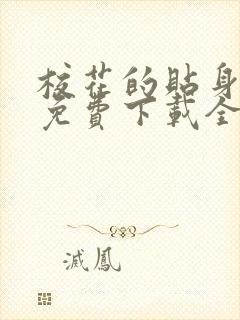 校花的貼身
免費下載全
滅鳳